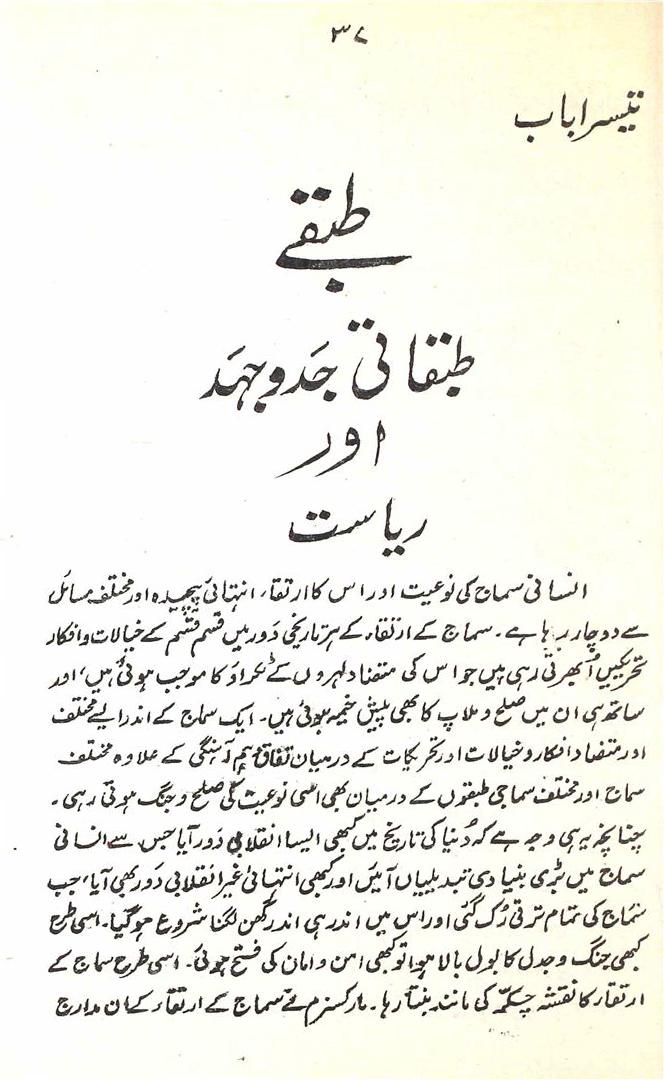 ۳۷
تیسرا باب
طبقے
طبقاتی جَدوجہَد
اور
ریاست
انسانی سماج کی نوعیت اور اس کا ارتقاء، انتہائی پیچیدہ اور مختلف مسائل
سے دوچار رہا ہے۔ سماج کے ارتقاء کے ہر تاریخی دَور میں قسم قسم کے خیالات و افکار
تحریکیں اُبھرتی رہی ہیں جو اس کی متضاد لہروں کے ٹکراؤ کا موجب ہوئی ہیں، اور
ساتھ ہی ان میں صلح و ملاپ کا بھی پیش خیمہ ہوئی ہیں۔ ایک سماج کے اندر ایسے مختلف
اور متضاد افکار و خیالات اور تحریکات کے درمیان نفاق و ہم آہنگی کے علاوہ مختلف
سماج اور مختلف سماجی طبقوں کے درمیان بھی اسی نوعیت کی صلح و جنگ ہوتی رہی۔
چنانچہ یہی وجہ ہے کہ دُنیا کی تاریخ میں کبھی ایسا انقلابی دَور آیا جس سے انسانی
سماج میں بڑی بنیادی تبدیلیاں آئیں اور کبھی انتہائی غیر انقلابی دَور بھی آیا، جب
سماج کی تمام ترقی رُک گئی اور اس میں اندر ہی اندر گھن لگنا شروع ہو گیا۔ اسی طرح
کبھی جنگ و جدل کا بول بالا ہوا تو کبھی امن و امان کی فتح ہوئی۔ اسی طرح سماج کے
ارتقار کا نقشہ چکمّہ کی مانند بنتا رہا۔ مارکسزم نے سماج کے ارتقار کے ان مدارج